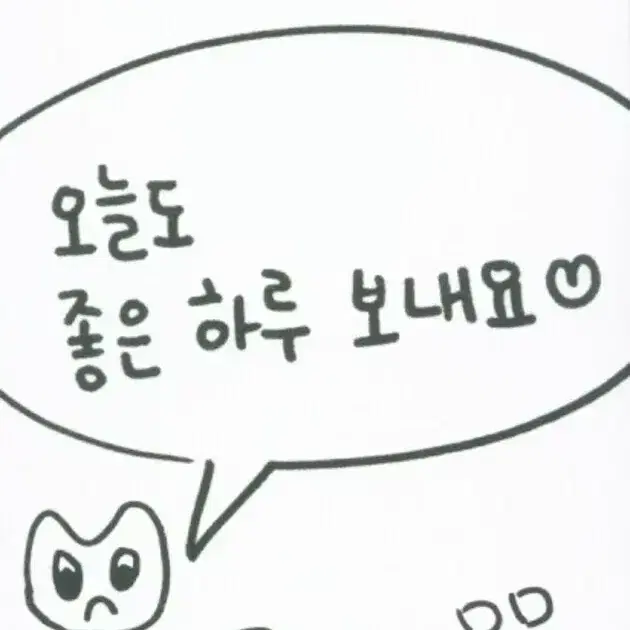 오늘도
좋은 하루 보내요♡